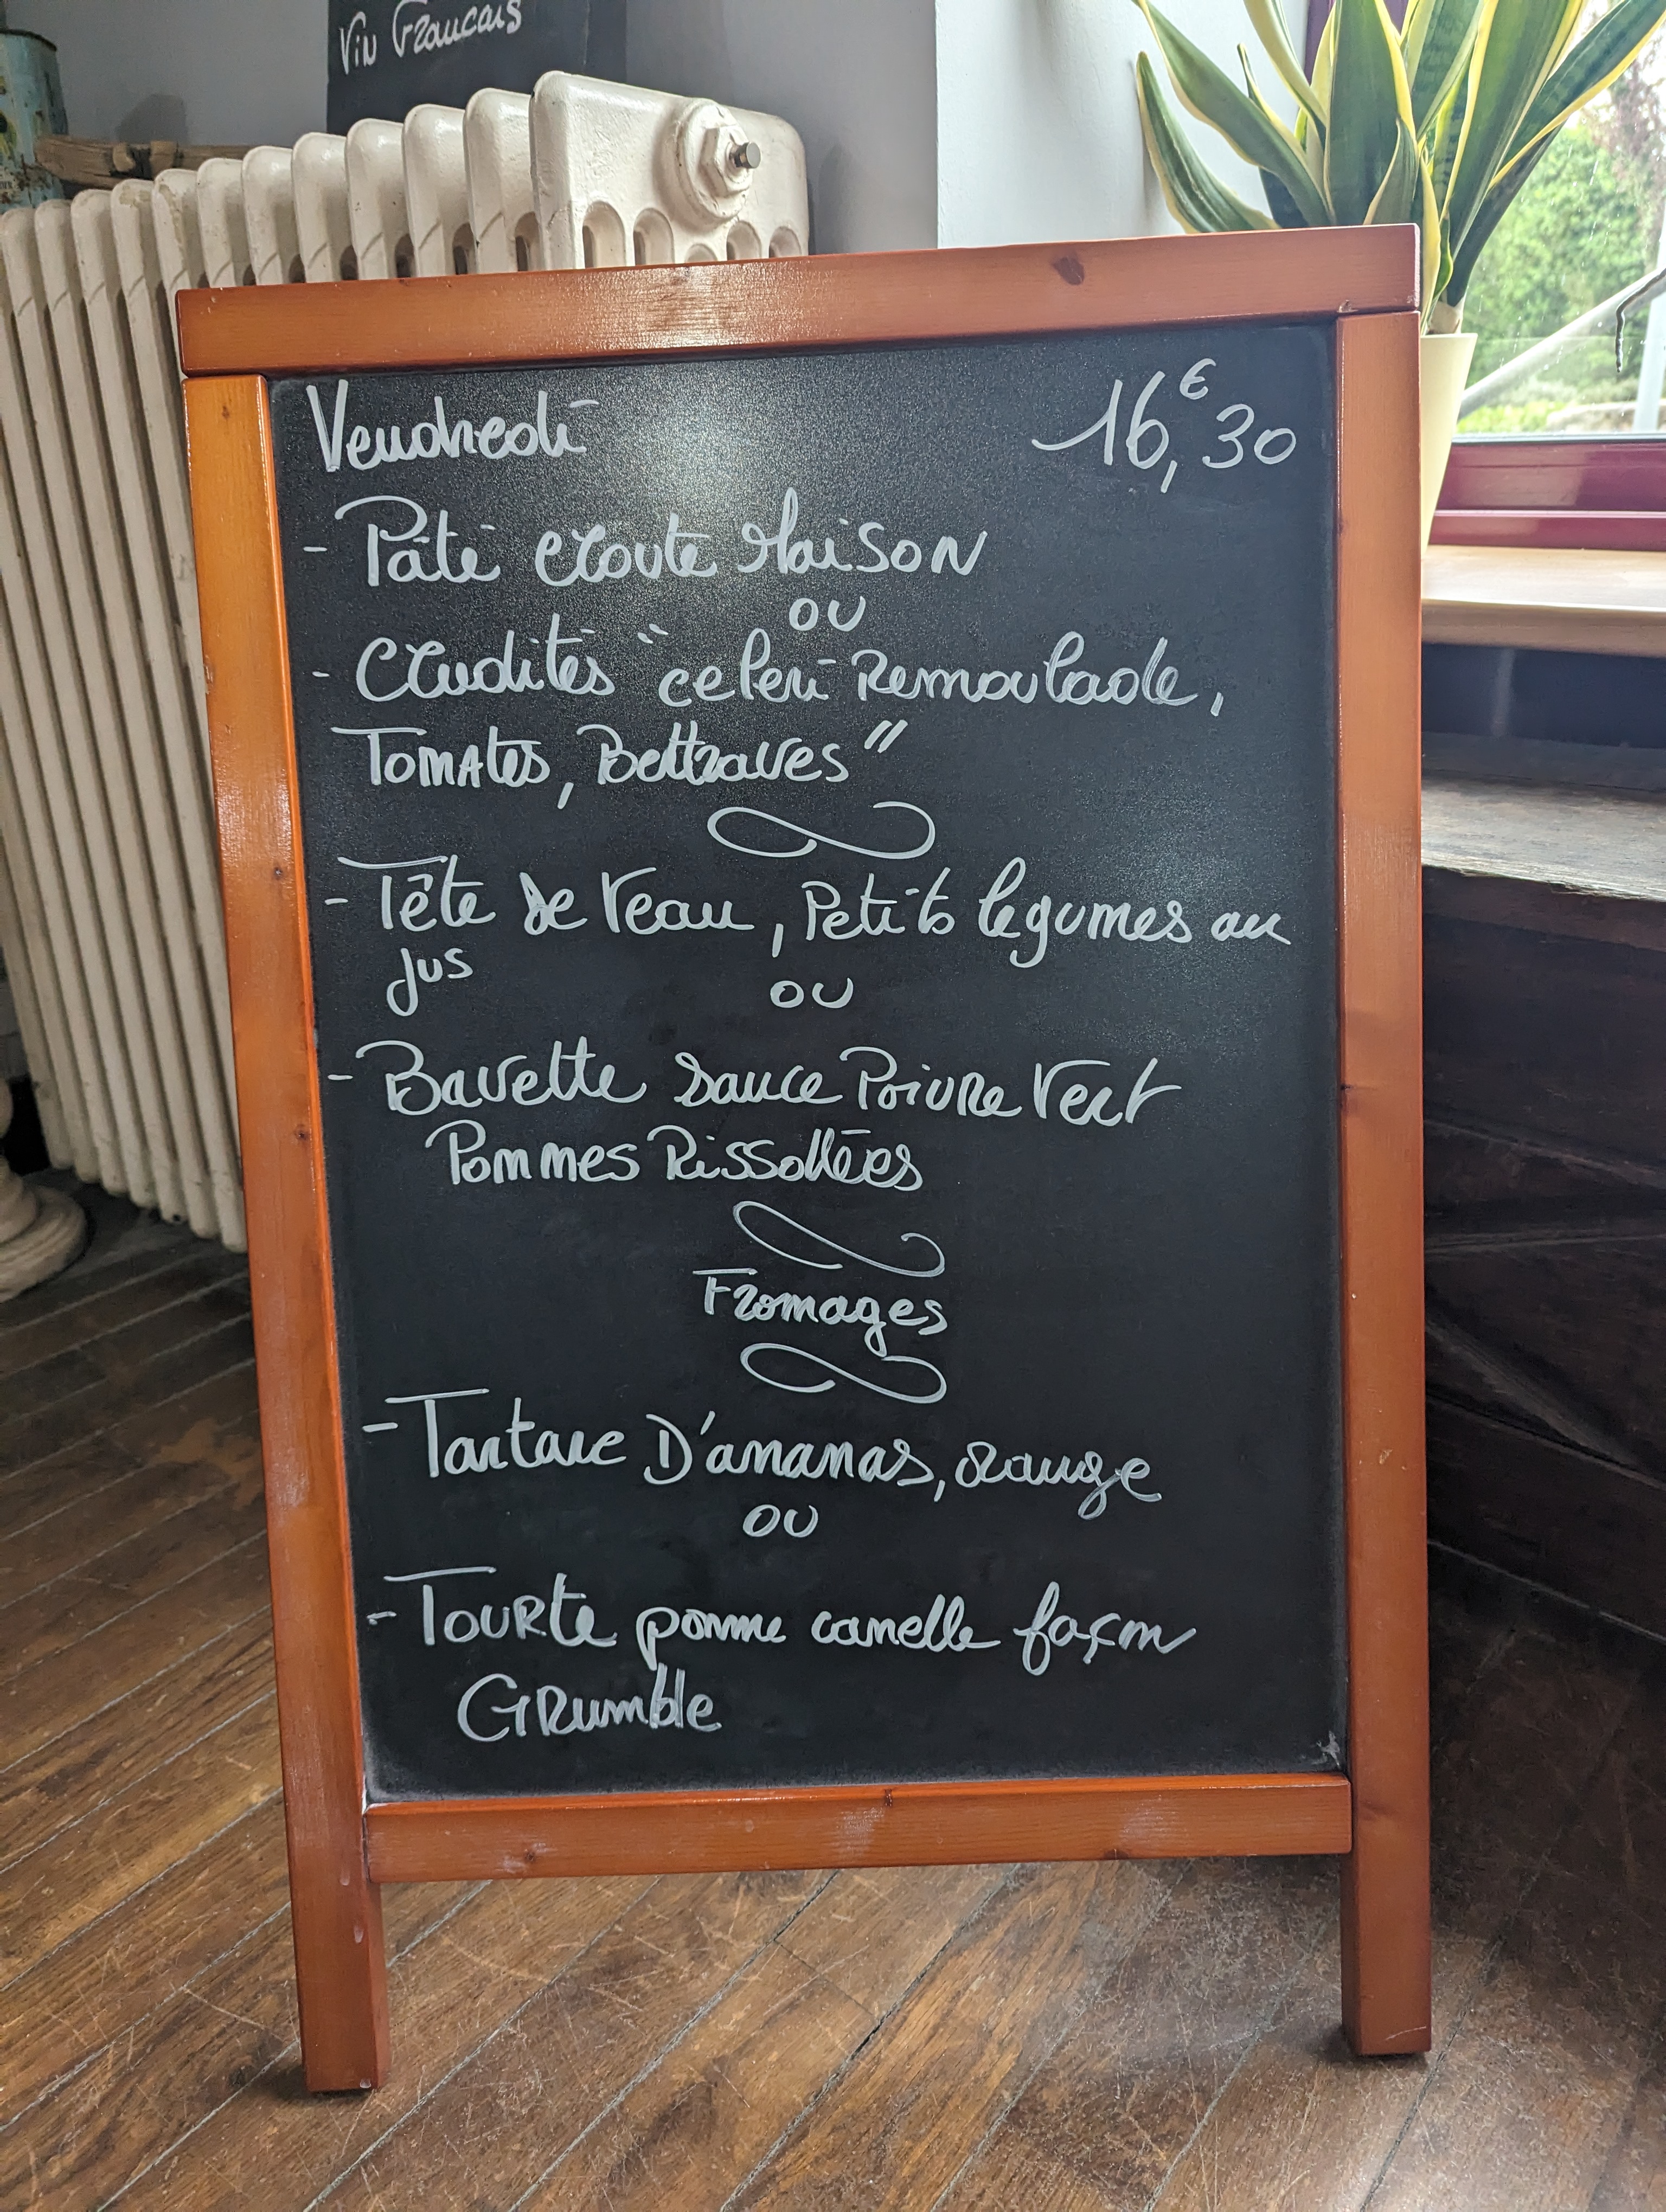 Vin Francais
Vendredi 16,€30
- Pâté croute Maison
ou
- Crudités "celeri Remoulade,
Tomates, Bettraves"
- Tête de Veau, Petits legumes au
jus
ou
- Bavette sauce Poivre Vert
Pommes Rissollées
Fromages
- Tartare D'ananas, orange
ou
- Tourte pomme canelle façon
Grumble